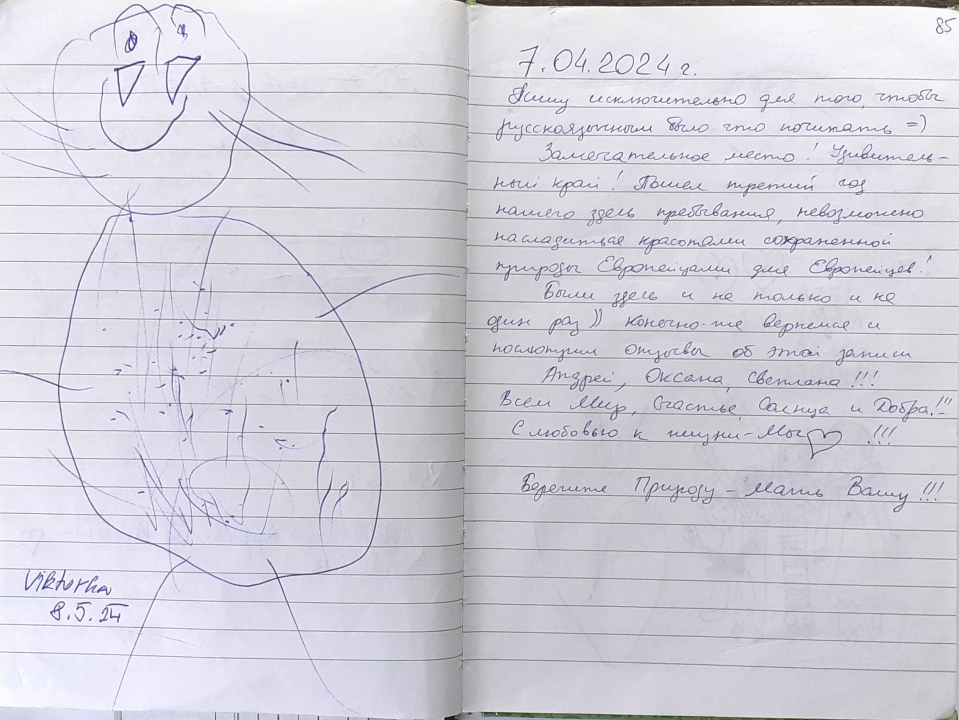 Vikturka
8.5.24
85
7.04.2024 г.
Пишу исключительно для того, чтобы
русскоязычным было что почитать =)
Замечательное место! Удивитель-
ный край! Пошел третий год
нашего здесь пребывания, невозможно
насладиться красотами сохраненной
природы Европейцами для Европейцев!
Были здесь и не только и не
один раз)) конечно-же вернемся и
посмотрим отзывы об этой записи
Андрей, Оксана, Светлана!!!
Всем Мир, Счастье, Солнца и Добра!!!
С любовью к жизни - Мы !!!
Берегите Природу - Мать Вашу!!!